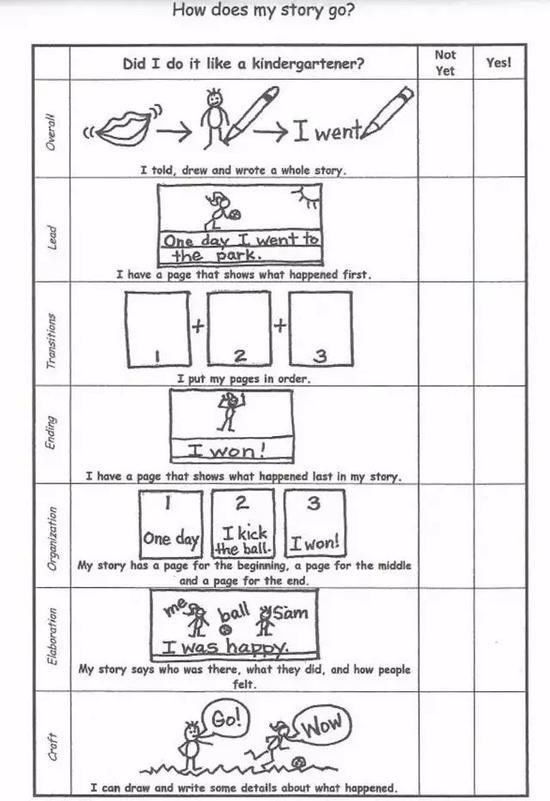 How does my story go?
Did I do it like a kindergartener?
Not
Yet
Yes!
Overall
I went
I told, drew and wrote a whole story.
Lead
One day I went to
the park.
I have a page that shows what happened first.
Transitions
+
+
1
2
3
I put my pages in order.
Ending
I won!
I have a page that shows what happened last in my story.
Organization
1
2
3
One day
I kick
the ball.
I won!
My story has a page for the beginning, a page for the middle
and a page for the end.
Elaboration
me
ball
Sam
I was happy.
My story says who was there, what they did, and how people
felt.
Craft
Go!
Wow
I can draw and write some details about what happened.